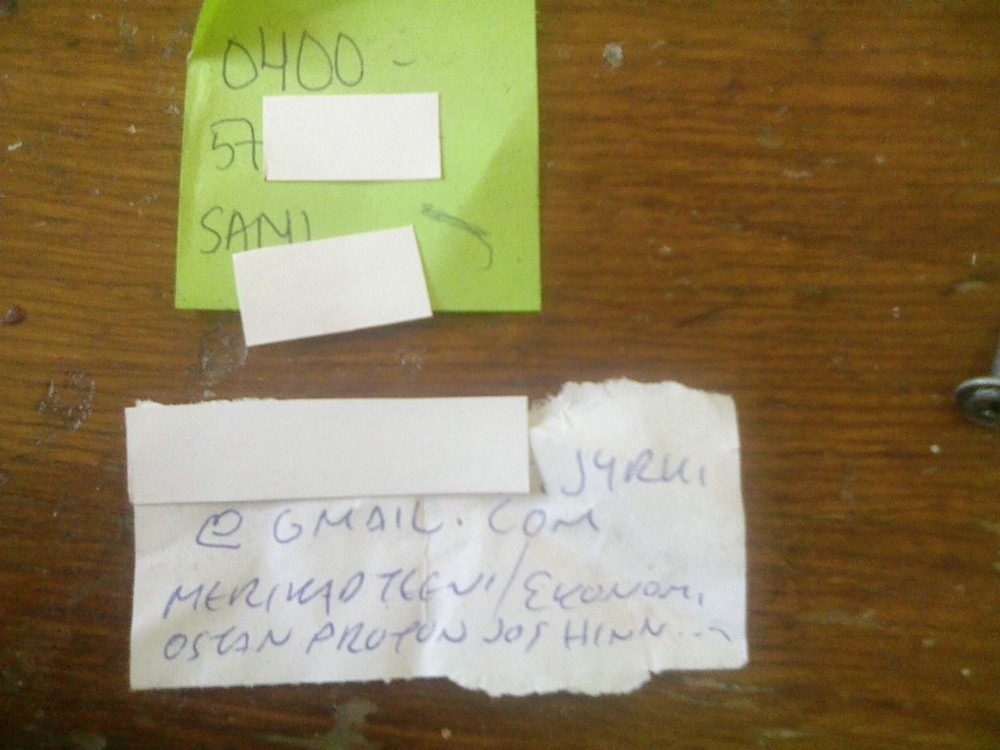 0400 -
57
SAMI
JYRKI
@ GMAIL.COM
MERIKADTEENI/EKONOMI
OSTAN PROTON JOS HINN...